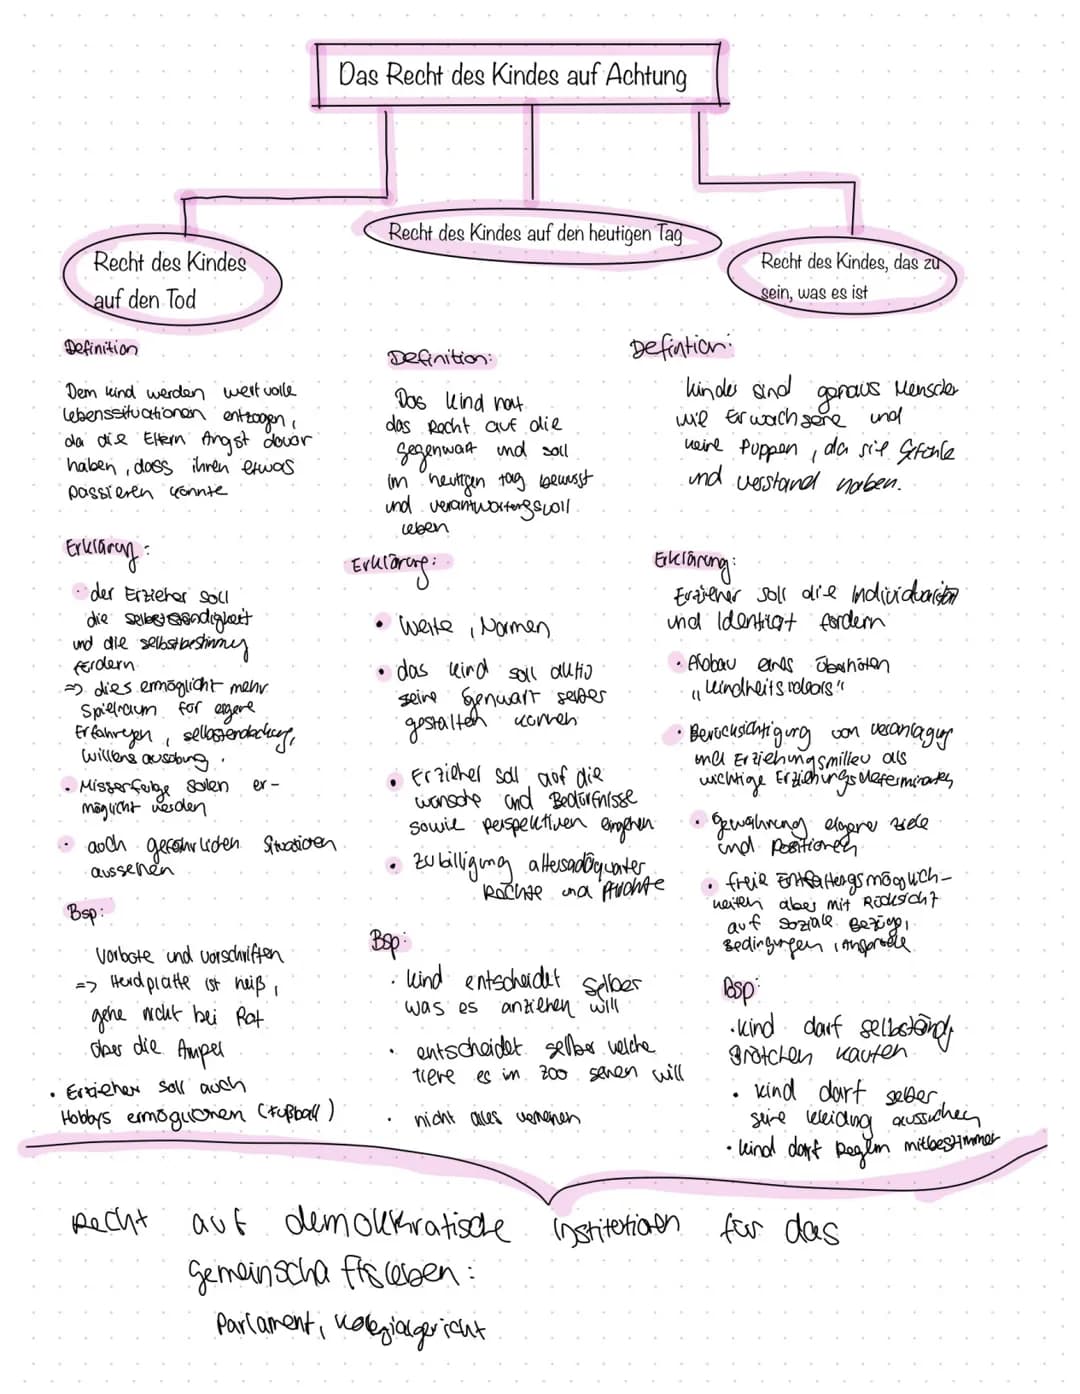 Das Recht des Kindes auf Achtung
Recht des Kindes
auf den Tod
Recht des Kindes auf den heutigen Tag
Recht des Kindes, das zu
sein, was es ist
Definition
Dem Kind werden wertvolle
Lebenssituationen entzogen,
da die Eltern Angst davor
haben, dass ihnen etwas
passieren könnte
Erklärung:
• der Erzieher soll
die Selbstständigkeit
und die Selbstbestimmung
fördern
=> dies ermöglicht mehr
Spielraum für eigene
Erfahrungen, selbstentdeckung,
Willensausübung.
• Misserfolge sollen er-
möglicht werden
• auch gefährlichen Situationen
aussehen
Bsp:
Verbote und Vorschriften
=> Herdplatte ist heiß,
gehe nicht bei Rot
über die Ampel
• Erzieher soll auch
Hobbys ermöglichen (Fußball)
Definition:
Das Kind hat
das Recht auf die
Gegenwart und soll
im heutigen Tag bewusst
und verantwortungsvoll
leben
Erklärung:
• Werte, Normen
• das Kind soll aktiv
seine Genwart selber
gestalten können
• Erzieher soll auf die
Wünsche und Bedürfnisse
sowie Perspektiven eingehen
• Zubilligung altersadäquater
Rechte und Pflichte
Bsp:
• Kind entscheidet selber
was es anziehen will
• entscheidet selber welche
Tiere es im Zoo sehen will
• nicht alles verneinen
Defintion:
Kinder sind genaus Menschen
wie Erwachsene und
keine Puppen, da sie Gefühle
und Verstand haben.
Erklärung:
Erzieher soll die Individualität
und Identität fördern
• Abbau eines überhöhten
"Kindheitsideals"
• Berücksichtigung von Veranlagung
und Erziehungsmilieu als
wichtige Erziehungsdeterminanten
• Gewährung eigener Ziele
und Positionen
• freie Entfaltungsmöglich-
keiten aber mit Rücksicht
auf soziale Bezüge,
Bedingungen, Ansprüche
Bsp:
• Kind darf selbständig
Brötchen kaufen
• Kind darf selber
seine Kleidung aussuchen
• Kind darf Regeln mitbestimmen
Recht auf demokkratische Institutionen für das
Gemeinschaftsleben:
Parlament, Kollegialgericht